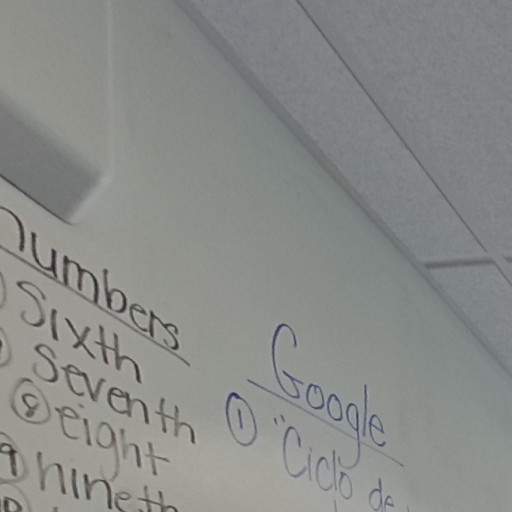 numbers
Sixth
Seventh
⑧ eight
⑨ nineth
Google
① "Ciclo de